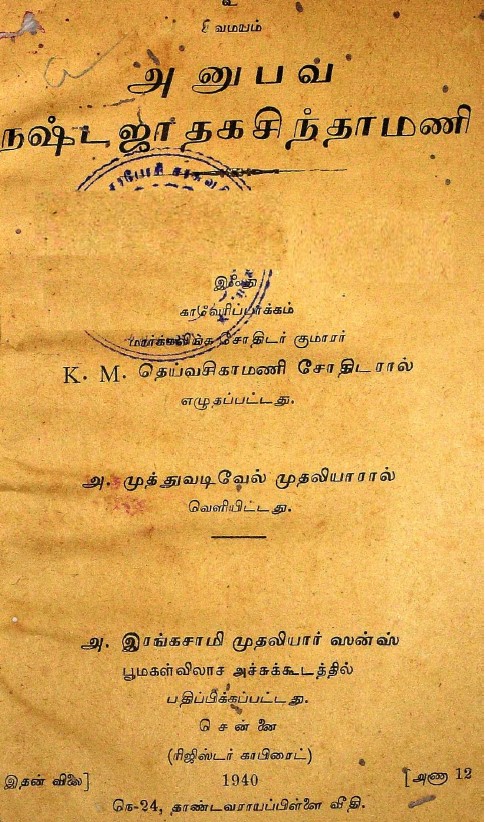 உ
சிவமயம்
அனுபவ
நஷ்டஜாதகசிந்தாமணி
இஃது
காவேரிப்பாக்கம்
மார்க்கலிங்க சோதிடர் குமாரர்
K. M. தெய்வசிகாமணி சோதிடரால்
எழுதப்பட்டது.
அ. முத்துவடிவேல் முதலியாரால்
வெளியிட்டது.
அ. இரங்கசாமி முதலியார் ஸன்ஸ்
பூமகள்விலாச அச்சுக்கூடத்தில்
பதிப்பிக்கப்பட்டது.
சென்னை
(ரிஜிஸ்டர் காபிரைட்)
இதன் விலை] 1940 [அணா 12
நெ-24, தாண்டவராயப்பிள்ளை வீதி.